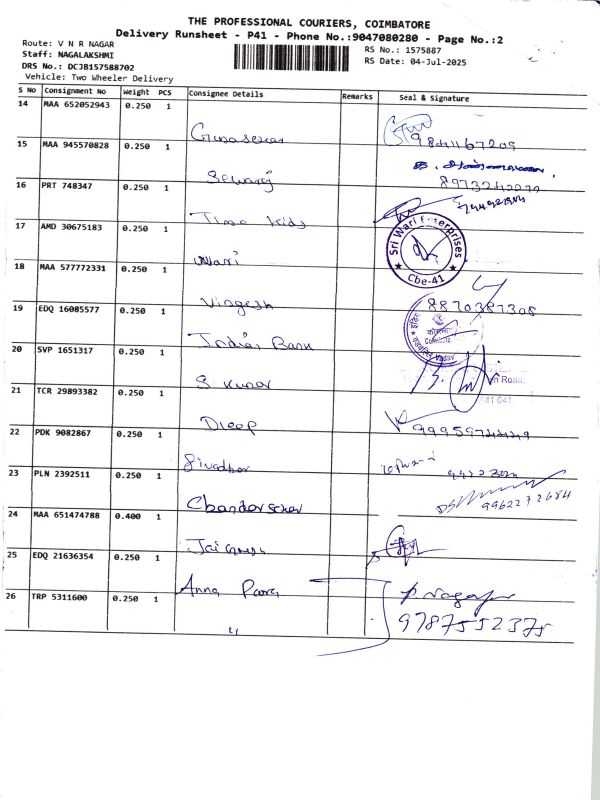 THE PROFESSIONAL COURIERS, COIMBATORE
Delivery Runsheet - P41 - Phone No.:9047080280 - Page No.:2
Route: V N R NAGAR
Staff: NAGALAKSHMI
DRS No.: DCJB157588702
Vehicle: Two Wheeler Delivery
RS No.: 1575887
RS Date: 04-Jul-2025
S No Consignment No Weight PCS Consignee Details Remarks Seal & Signature
14 MAA 652052943 0.250 1 Gunasekar 9841167209
15 MAA 945570828 0.250 1
16 PRT 748347 0.250 1 Time Kids
17 AMD 30675183 0.250 1 Wari Sri Wari Enterprises Cbe-41
18 MAA 577772331 0.250 1 Vignesh 8870387308
19 EDQ 16085577 0.250 1 Indian Bank
20 SVP 1651317 0.250 1 S Kumar Road, 641 041.
21 TCR 29893382 0.250 1 Dleep
22 PDK 9082867 0.250 1
23 PLN 2392511 0.250 1 Chandarsekar 9962272684
24 MAA 651474788 0.400 1 Jai Ganesh
25 EDQ 21636354 0.250 1 Anna Poorna
26 TRP 5311600 0.250 1 " P. Nagaraj
9787552375